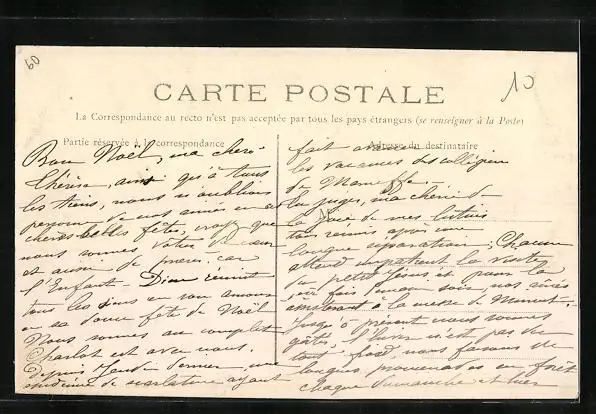 60
10
CARTE POSTALE
La Correspondance au recto n'est pas acceptée par tous les pays étrangers (se renseigner à la Poste)
Partie réservée à la correspondance
Adresse du destinataire
Bon Noël, ma chère
Thérèse, ainsi qu'à tous
les tiens, nous n'oublions
personne de nos amis en ces
chères belles fêtes, croyez que
nous sommes votre de cœur
et aussi de prière, car
l'Enfant-Dieu réunit
tous les siens en son amour
en sa douce fête de Noël
Nous sommes au complet
Charlot est avec nous,
depuis Jeudi dernier, une
de scarlatine ayant
fait
les vacances des collégiens
de
Tu juges, ma chérie de
la joie de mes lutins
tous réunis après une
longue séparation; Chacun
attend impatient la visite
du petit Jésus et pour la
1ère fois demain soir, nos aînés
assisteront à la messe de Minuit.
Jusqu'à présent nous sommes
gâtés, l'hiver n'est pas du
tout froid, nous faisons de
longues promenades en forêt
chaque dimanche et hier